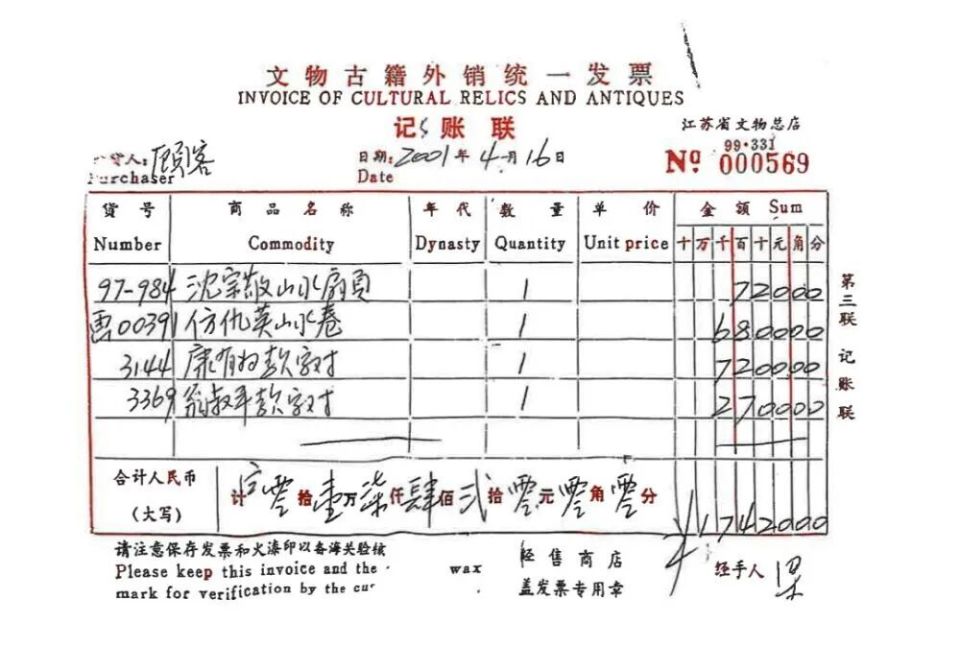 文物古籍外销统一发票
INVOICE OF CULTURAL RELICS AND ANTIQUES
记账联
江苏省文物总店
99·331
货人：顾客
Purchaser
日期：2001年4月16日
Date
Nº 000569
货号 商品名称 年代 数量 单价 金额 Sum
Number Commodity Dynasty Quantity Unit price 十万千百十元角分
97-984 沈宗敬山水扇页 1 72000
00391 仿仇英山水卷 1 680000
3144 康有为款字对 1 720000
3369 翁叔平款字对 1 270000
合计人民币
（大写）
计 零拾壹万柒仟肆佰贰拾零元零角零分
¥1742000
第三联 记账联
请注意保存发票和火漆印以备海关验核
Please keep this invoice and the wax
mark for verification by the cu
经售商店
盖发票专用章
经手人